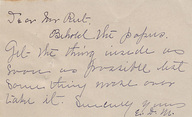 Dear Mr Put.
Behold the papers.
Get the thing inside as
soon as possible but
some thing more over
take it. Sincerely yours
E. D. M.